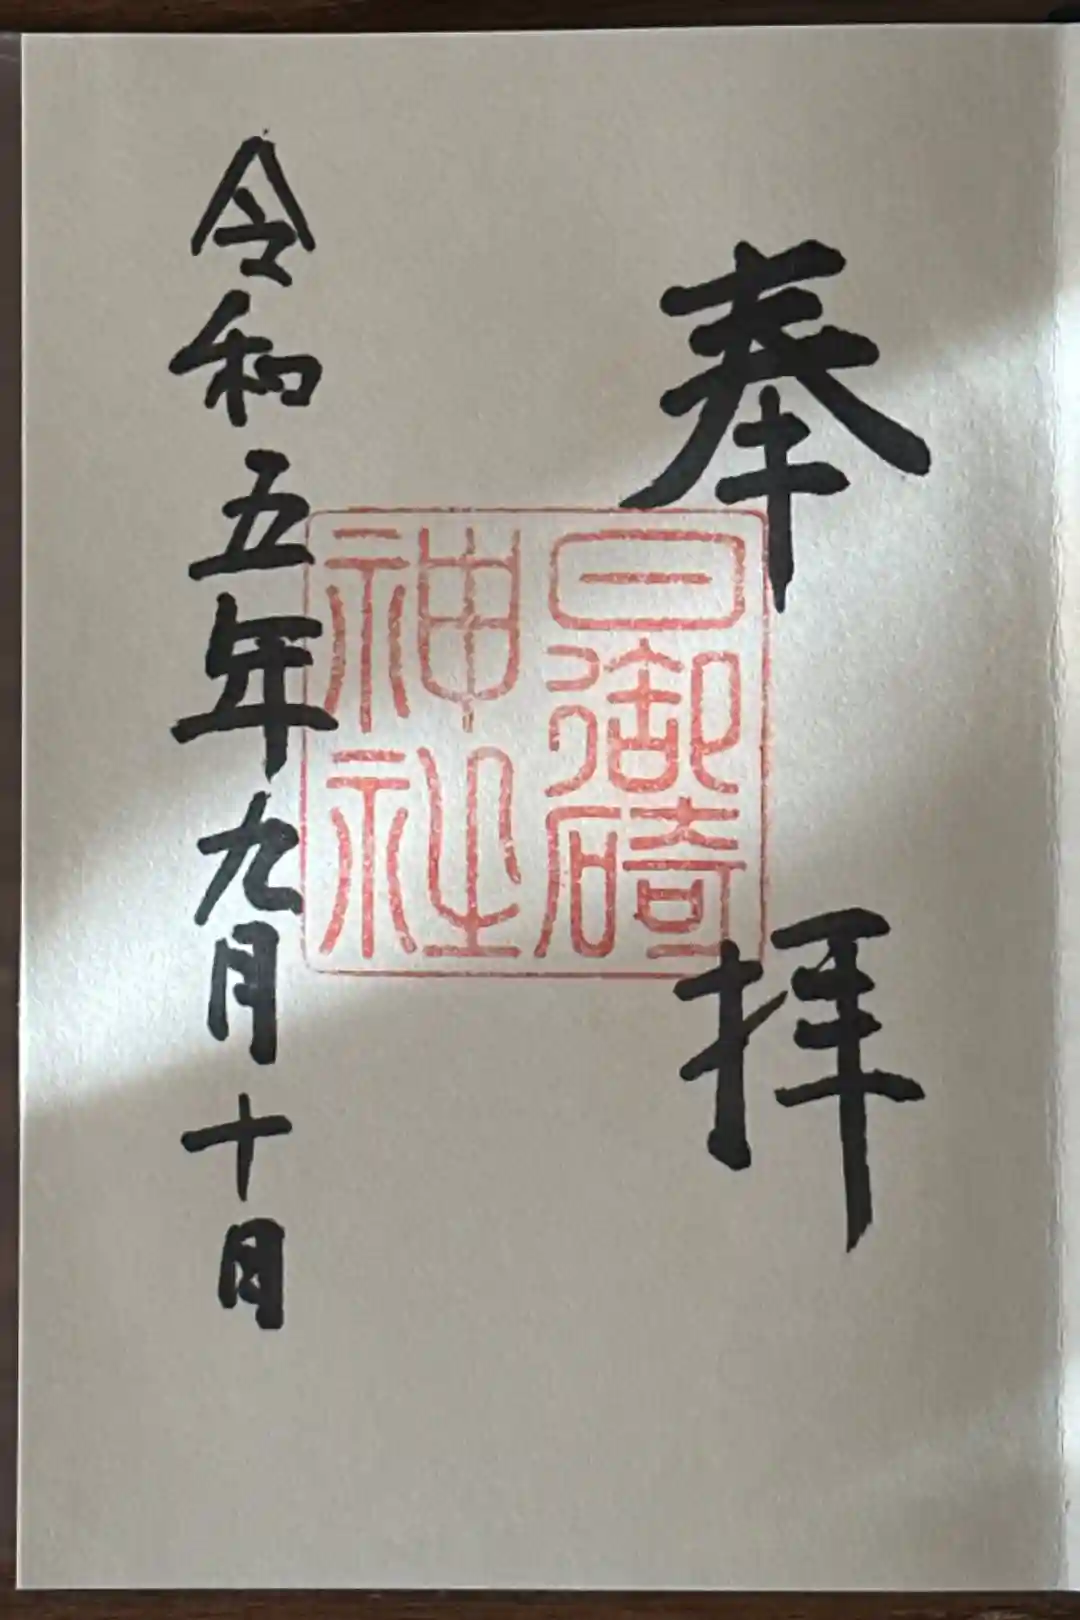 奉拝
日御碕
神社
令和五年九月十日